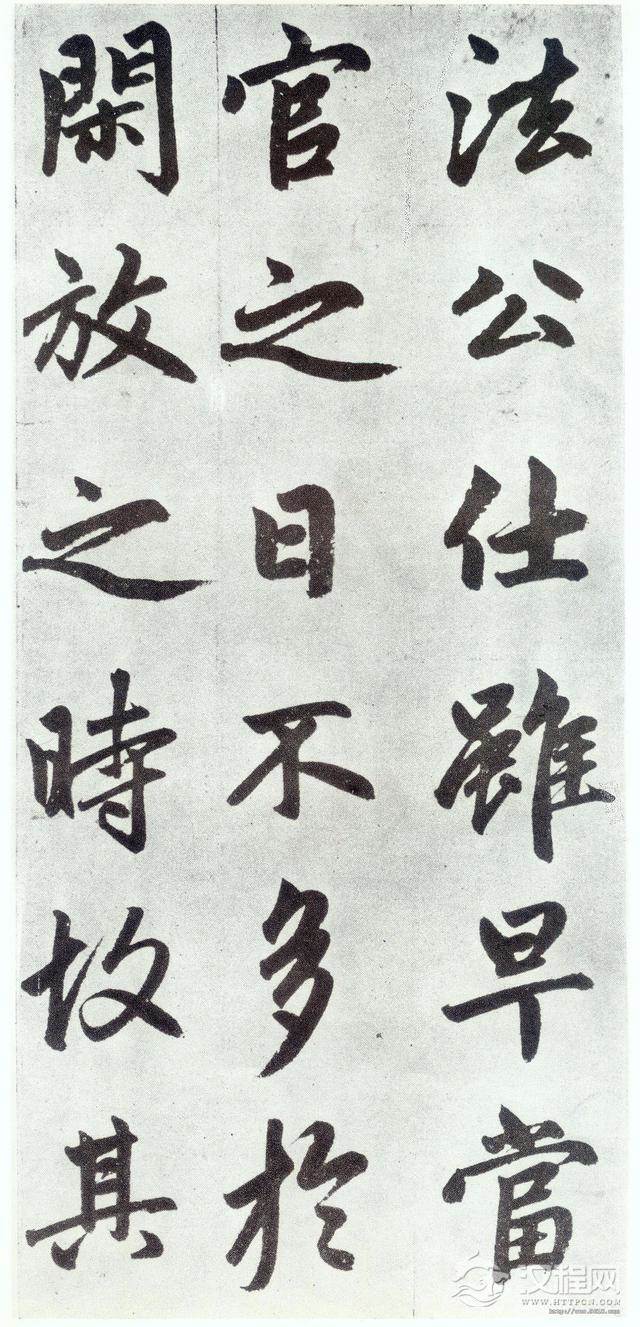 法公仕雖早當
官之日不多於
閑放之時故其
汉程网
WWW.HTTPCN.COM